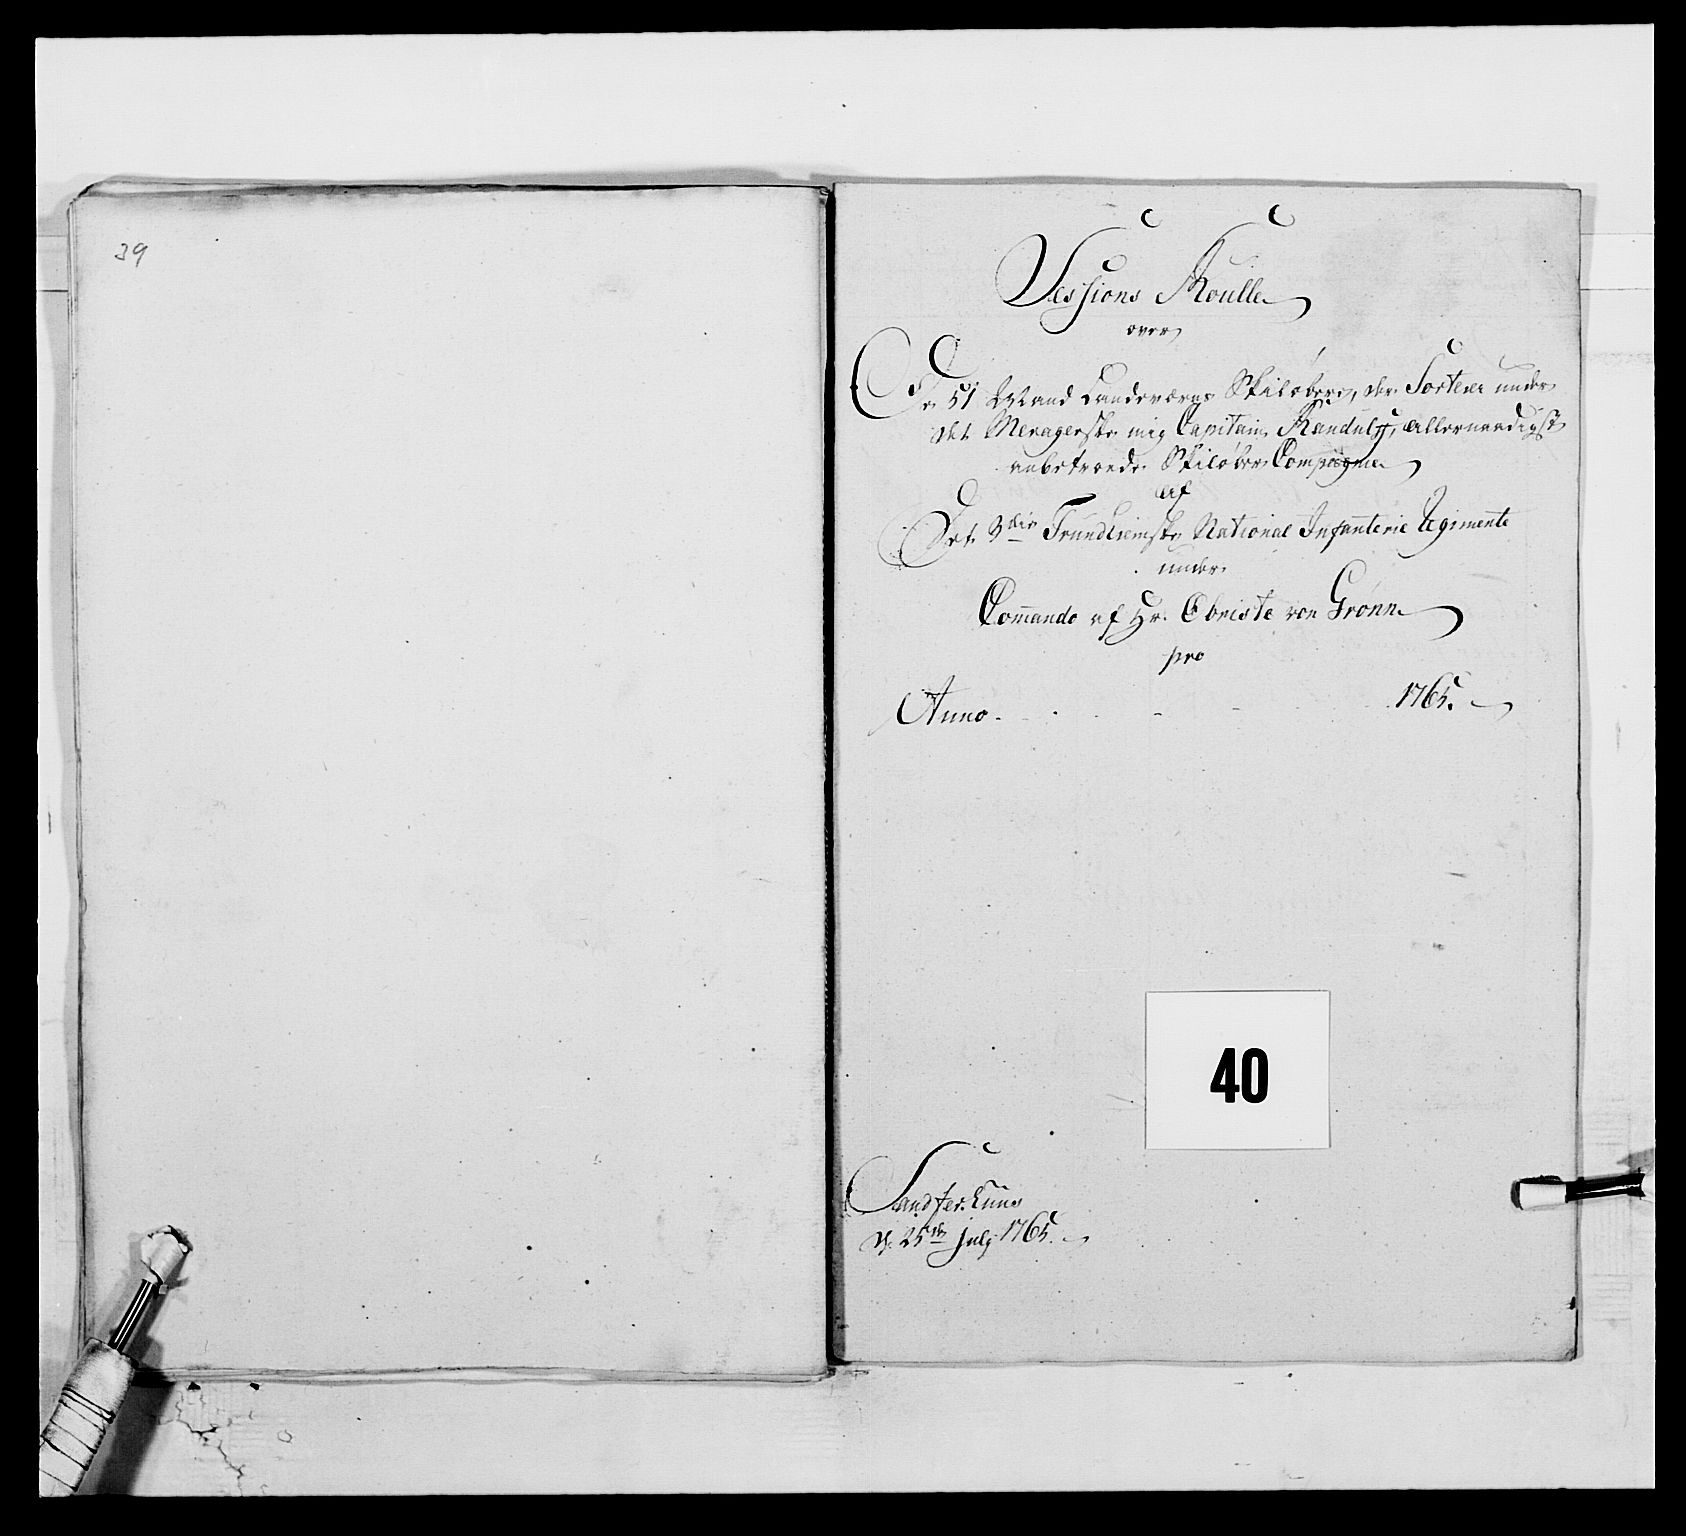 39
Sessions Roulle
over
De 51 Mand Landeværns Skiløbere, der Sorterer under
det Meragerske mig Capitain Randulff, allernaadigst
anbetroede Skiløber Compagnie
af
Det 3die Trundhiemske National Infanterie Regimente
under
Commando af Hr. Obriste von Grønn
pro
Anno 1765.
40
d. 25de July 1765.